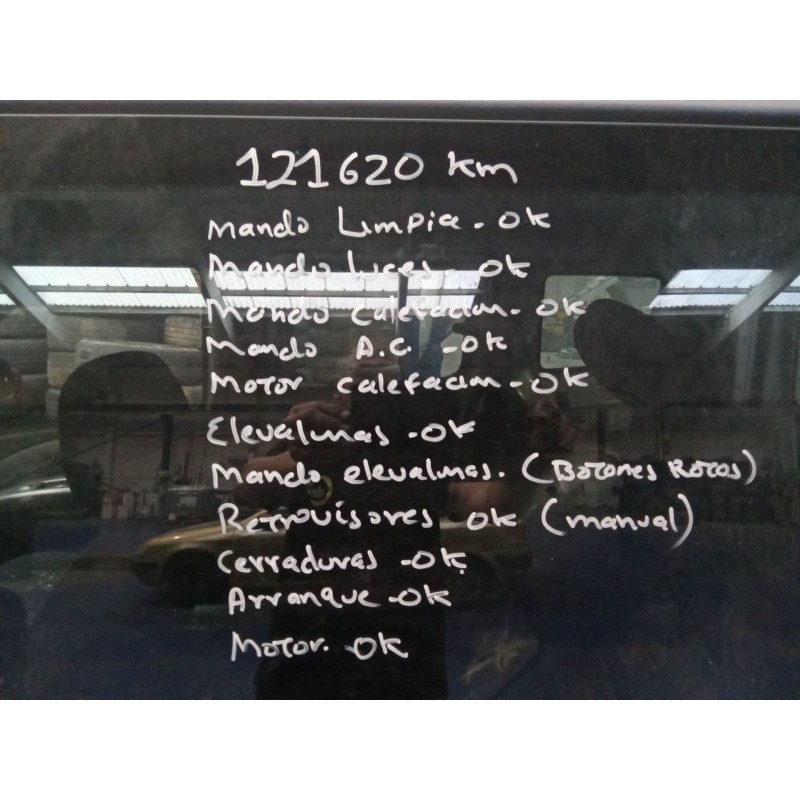 121620 km
Mando Limpia - OK
Mando luces - OK
Mando calefaccion - OK
Mando A.C. - OK
Motor calefaccion - OK
Elevalunas - OK
Mando elevalunas. (Botones Rotos)
Retrovisores OK (manual)
Cerraduras - OK.
Arranque - OK
Motor. OK